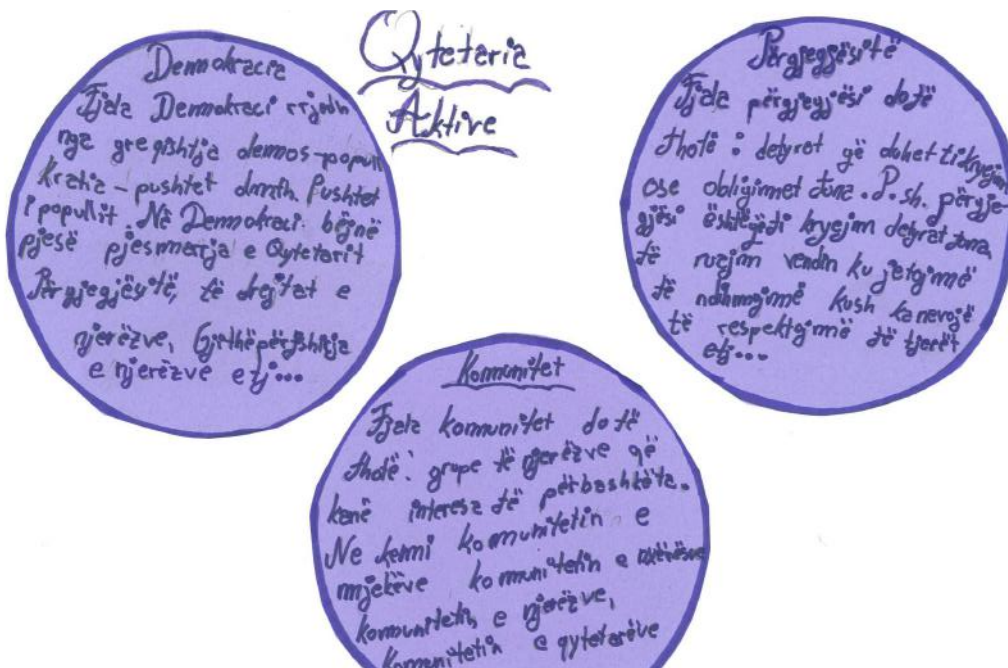 Qytetaria
Aktive
Demokracia
Fjala Demokraci rrjedh
nga greqishtja demos-popull
Kratia-pushtet dmth. Pushtet
i popullit. Në Demokraci bëjnë
pjesë pjesmarrja e Qytetarit
Përgjegjësitë, të drejtat e
njerëzve, Gjithëpërfshirja
e njerëzve etj...
Përgjegjësitë
Fjala përgjegjësi do të
thotë: detyrat që duhet ti kryejm
ose obligimet tona. P.sh. përgje-
gjësi është që ti kryejm detyrat tona,
të ruajm vendin ku jetojmë
të ndihmojmë kush ka nevojë
të respektojmë të tjerët
etj...
Komunitet
Fjala komunitet do të
thotë: grupe të njerëzve që
kanë interesa të përbashkëta.
Ne kemi komunitetin e
mjekëve komunitetin e
komunitetin e njerëzve,
komunitetin e qytetarëve